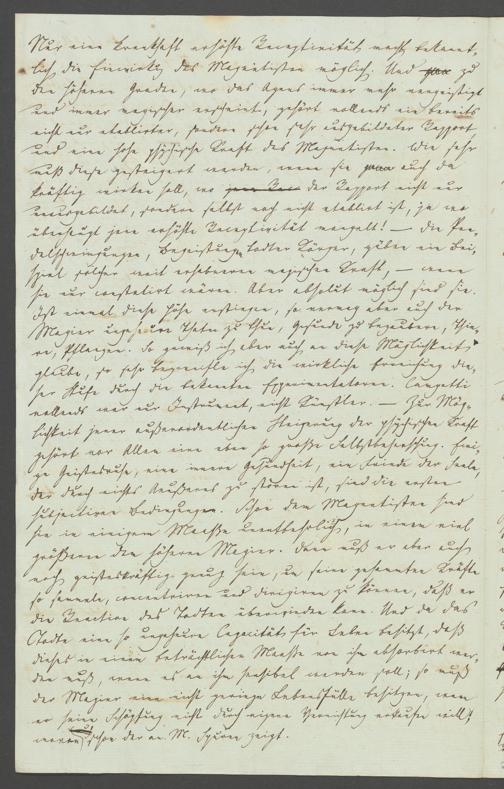 Nur eine krankhaft erhöhte Receptivität macht bekannt-
lich die Einwirkung des Magnetisten möglich. Und zu
den höheren Graden, wo das Agens immer mehr vergeistigt
und immer magischer erscheint, gehört vollends ein bereits
nicht nur etablirter, sondern schon sehr ausgebildeter Rapport
und eine hohe physische Kraft des Magnetisten. Wie sehr
muß diese gesteigert werden, wenn sie auch da
kräftig wirken soll, wo der Rapport nicht nur
unausgebildet, sondern selbst noch nicht etablirt ist, ja wo
überhaupt jene erhöhte Receptivität mangelt! — Die Pen-
delschwingungen, Begeistung todter Körper, gäben ein Bei-
spiel solcher weit erhabenern magischen Kraft, — wenn
sie nur constatirt wären. Aber absolut möglich sind sie.
Ist einmal diese Höhe erstiegen, so vermag aber auch der
Magier ungeheure Thaten zu thun, Gesunde zu bezaubern, Thie-
re, Pflanzen. So gewiß ich aber auch an diese Möglichkeit
glaube, so sehr bezweifle ich die wirkliche Erreichung die-
ser Stufe durch die bekannten Experimentatoren. Campetti
vollends war nur Instrument, nicht Künstler. — Zur Mög-
lichkeit jener außerordentlichen Steigerung der physischen Kraft
gehört vor Allem eine eben so große Selbstbeherrschung. Ewi-
ge Geistesruhe, eine innere Gesundheit, ein Friede der Seele,
der durch nichts Äußeres zu stören ist, sind die ersten
subjectiven Bedingungen. Schon dem Magnetisten sind
sie in einigem Maaße unentbehrlich, in einem viel
größeren dem höheren Magier. Dann muß er aber auch
noch geisteskräftig genug sein, um seine gesammten Kräfte
so sammeln, concentriren und dirigiren zu können, daß er
die Reaction des Todten überwinden kann. Und da das
Todte eine so ungeheure Capacität für Leben besitzt, daß
dieses in einem beträchtlichen Maaße von ihm absorbirt wer-
den muß, wenn es an ihm sensibel werden soll; so muß
der Magier eine nicht geringe Lebensfülle besitzen, wenn
er seine Schöpfung nicht durch eigene Vernichtung erkaufen will!
schon der an. M. Spuren zeigt.